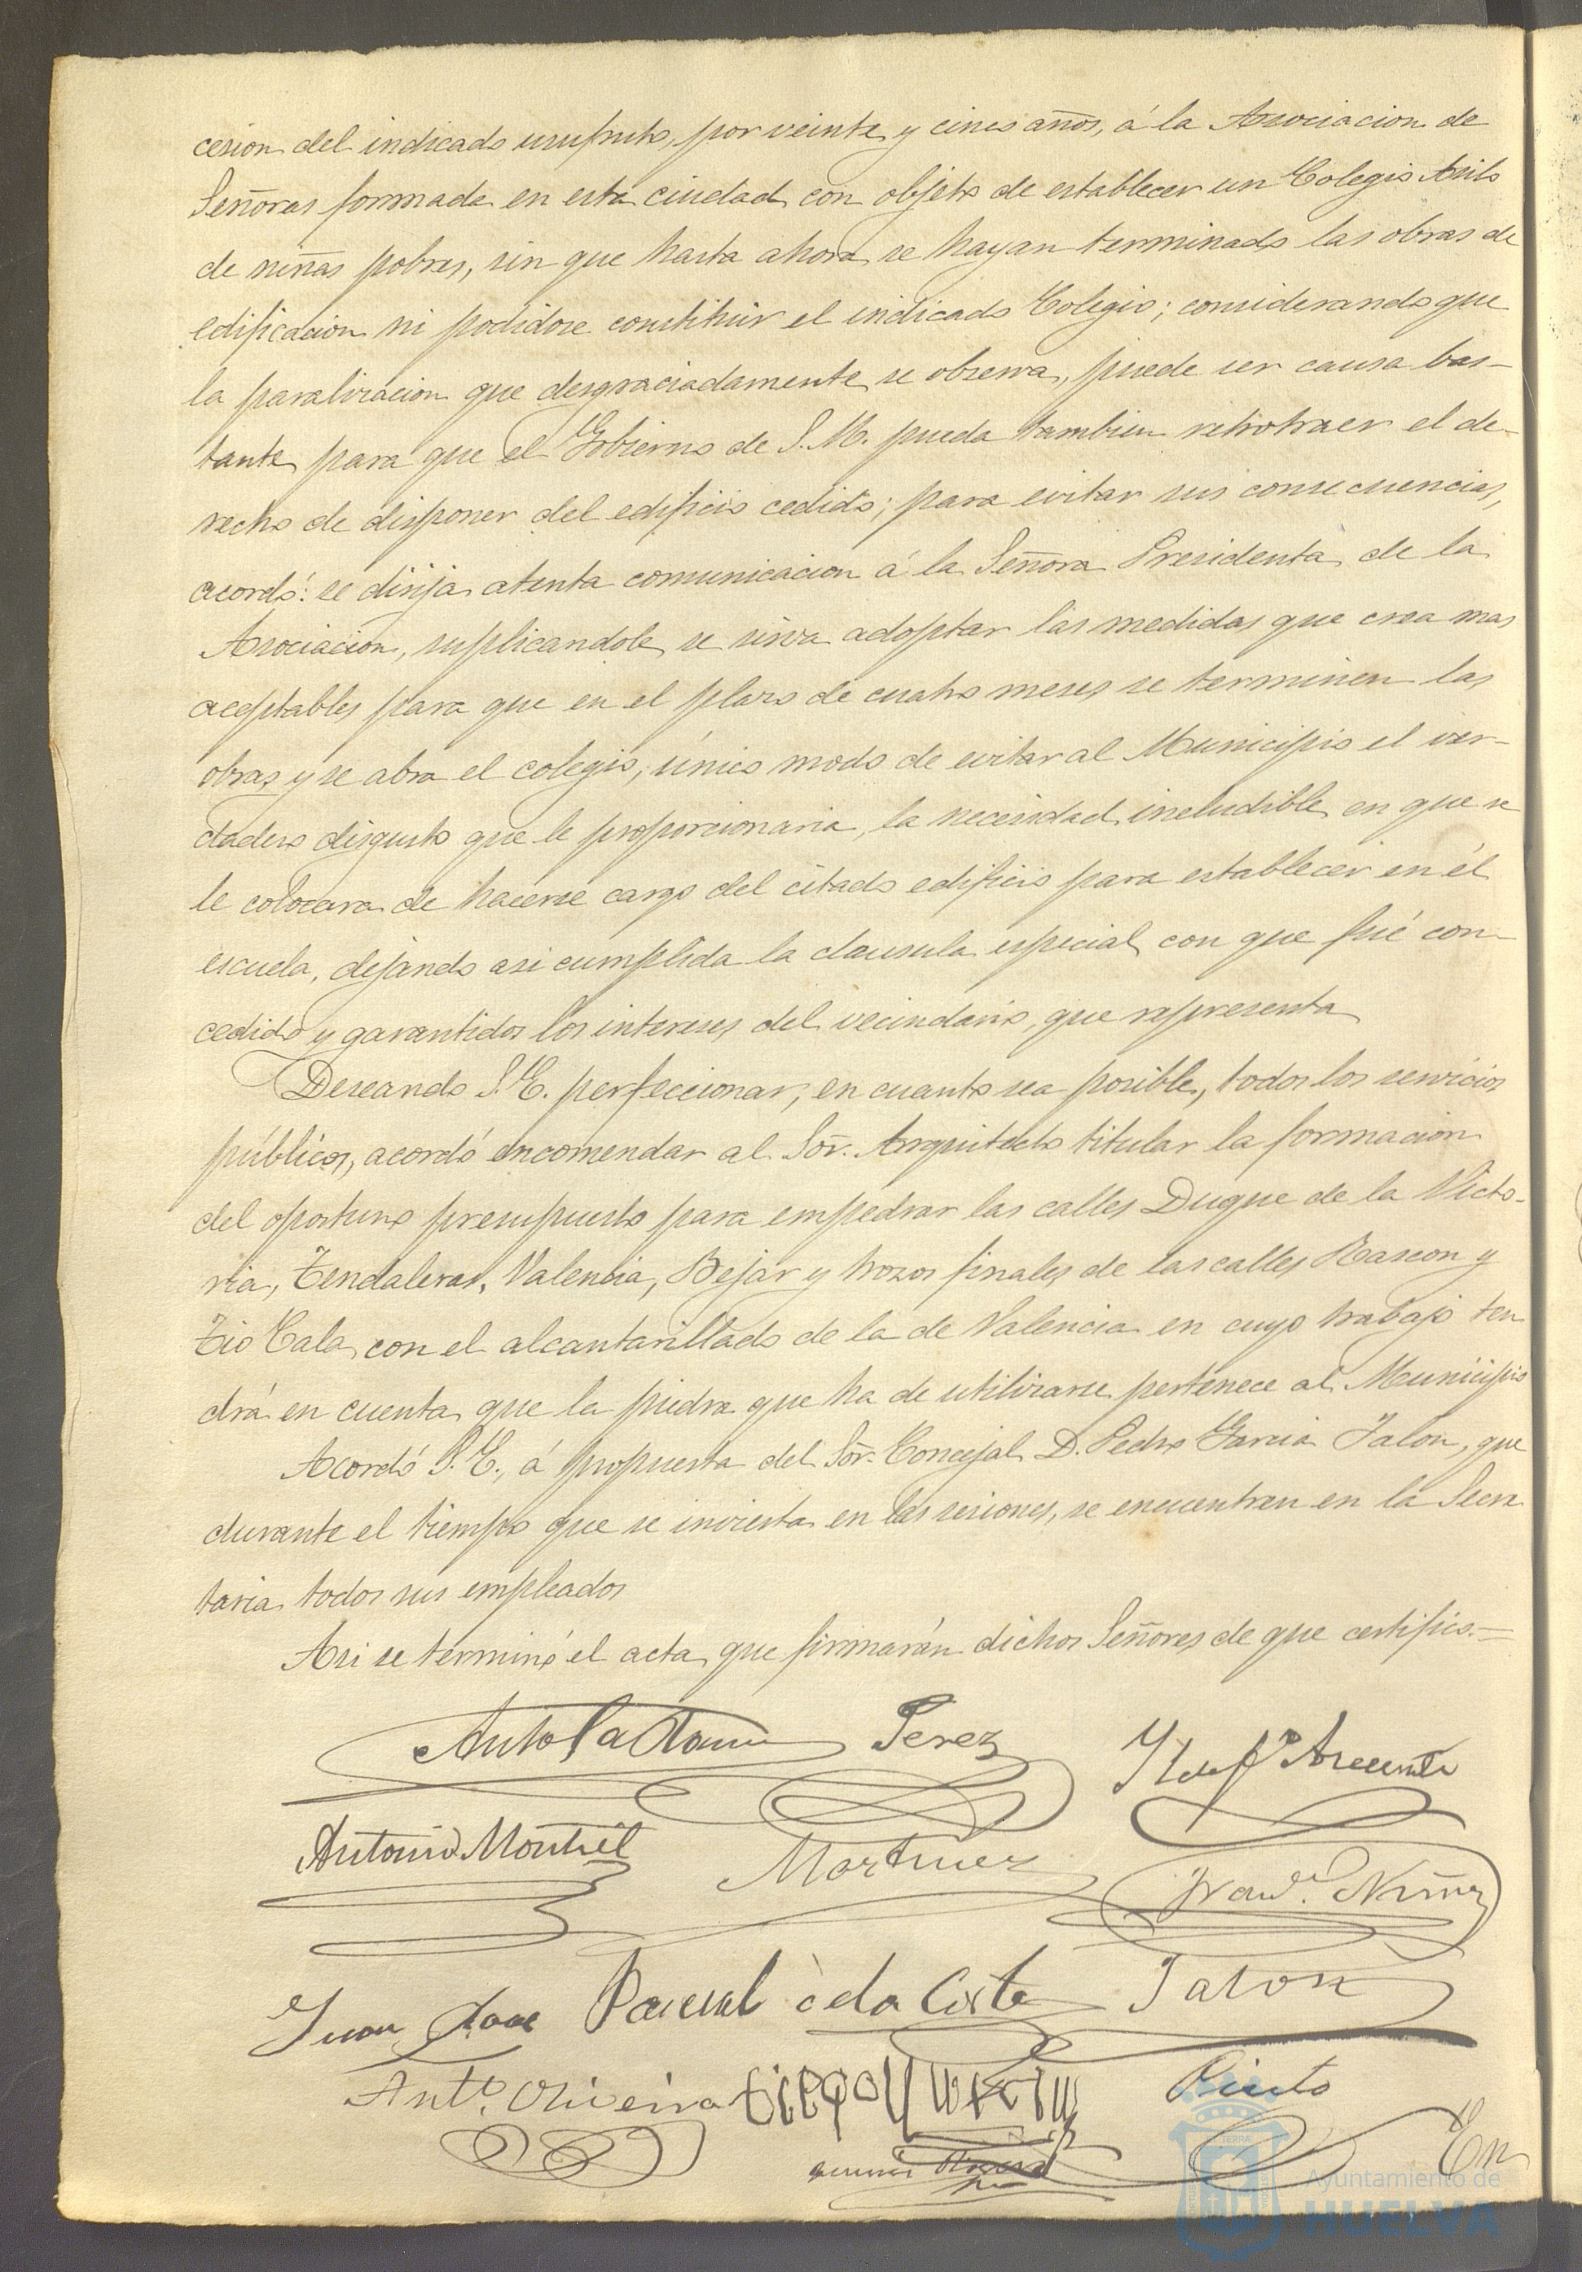 cesion del indicado usufruto, por veinte y cinco años, á la Asociacion de
Señoras formada en esta ciudad con objeto de establecer un Colegio Asilo
de niñas pobres, sin que hasta ahora se hayan terminado las obras de
edificacion ni podidose constituir el indicado Colegio; considerando que
la paralizacion que desgraciadamente se observa, puede ser causa bas-
tante para que el Gobierno de S. M. pueda tambien retrotraer el de-
recho de disponer del edificio cedido; para evitar sus consecuencias,
acordó: se dirija atenta comunicacion á la Señora Presidenta de la
Asociacion, suplicandole se sirva adoptar las medidas que crea mas
aceptables para que en el plazo de cuatro meses se terminen las
obras y se abra el colegio, único modo de evitar al Municipio el ver-
dadero disgusto que le proporcionaria, la necesidad ineludible en que se
le colocara de hacerse cargo del citado edificio para establecer en él
escuela, dejando asi cumplida la clausula especial con que fué con-
cedido y garantidos los intereses del vecindario, que representa
Deseando S. E. perfeccionar, en cuanto sea posible, todos los servicios
públicos, acordó encomendar al Sor. Arquitecto titular la formacion
del oportuno presupuesto para empedrar las calles Duque de la Victo-
ria, Tendaleras, Valencia, Bejar y trozos finales de las calles Rascon y
Tio Cala, con el alcantarillado de la de Valencia en cuyo trabajo ten
drá en cuenta que la piedra que ha de utilizarse pertenece al Municipio
Acordó S. E., á propuesta del Sor. Concejal D. Pedro Garcia Jalon, que
durante el tiempo que se invierta en las sesiones, se encuentran en la Secre
taria todos sus empleados
Asi se terminó el acta que firmarán dichos Señores de que certifico.=
Perez
Antonio Montiel Martinez Franco. Nuñez
Juan Pascual de la Corte Jalon
Anto. Oliveira Pinto
En
Ayuntamiento de
HUELVA